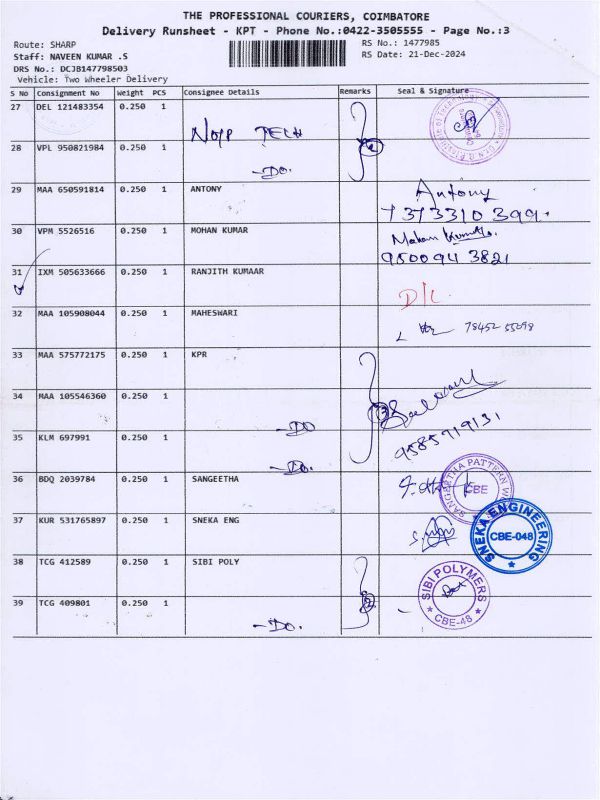 THE PROFESSIONAL COURIERS, COIMBATORE
Delivery Runsheet - KPT - Phone No.:0422-3505555 - Page No.:3
Route: SHARP
RS No.: 1477985
Staff: NAVEEN KUMAR .S
RS Date: 21-Dec-2024
DRS No.: DCJB147798503
Vehicle: Two Wheeler Delivery
S No Consignment No Weight PCS Consignee Details Remarks Seal & Signature
27 DEL 121483354 0.250 1
28 VPL 950821984 0.250 1 TECH
-DO.
29 MAA 650591814 0.250 1 ANTONY Antony
7373310399.
30 VPM 5526516 0.250 1 MOHAN KUMAR Mohan Kumar.
9500943821
31 IXM 505633666 0.250 1 RANJITH KUMAAR D/L
32 MAA 105908044 0.250 1 MAHESWARI 78452 55098
33 MAA 575772175 0.250 1 KPR
34 MAA 105546360 0.250 1 -DO 3
35 KLM 697991 0.250 1 -DO. 9585719131
36 BDQ 2039784 0.250 1 SANGEETHA SANGEETHA PATTERN CBE
37 KUR 531765897 0.250 1 SNEKA ENG SNEKA ENGINEERING CBE-048
38 TCG 412589 0.250 1 SIBI POLY 2 SIBI POLYMERS CBE-48
39 TCG 409801 0.250 1 -DO.